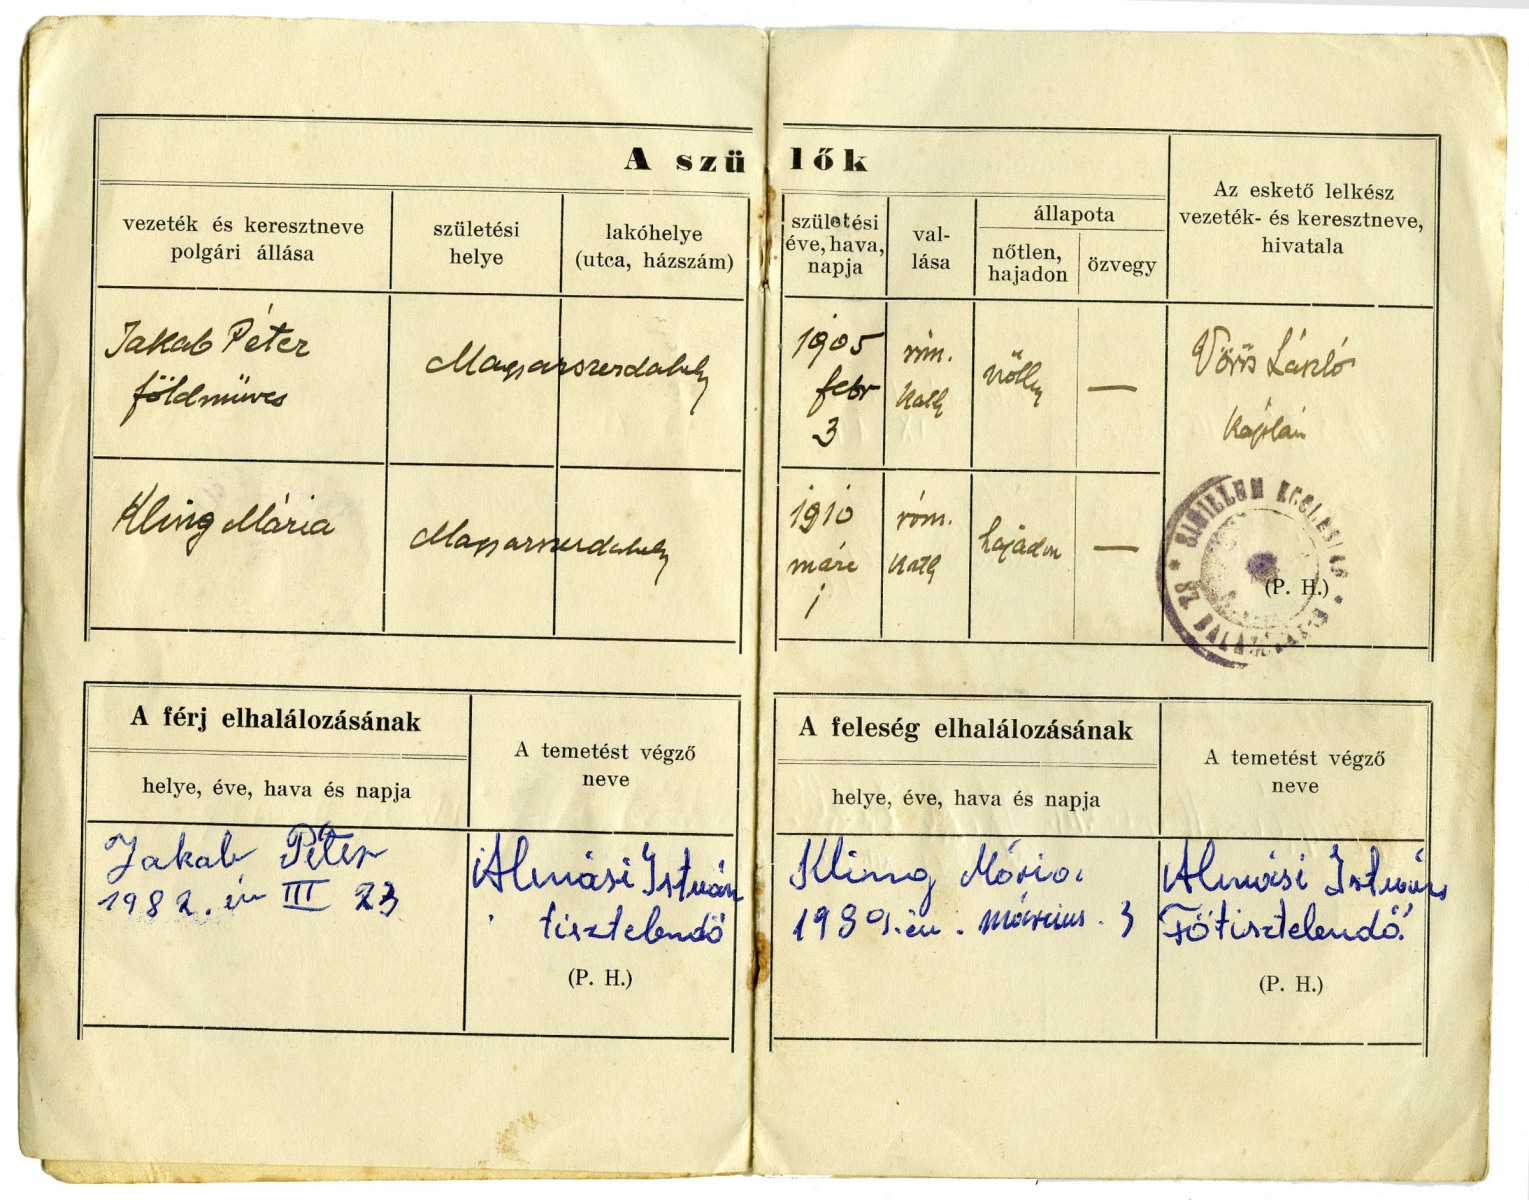 A szülők
vezeték és keresztneve
polgári állása
születési
helye
lakóhelye
(utca, házszám)
születési
éve, hava,
napja
val-
lása
állapota
nőtlen,
hajadon
özvegy
Az eskető lelkész
vezeték- és keresztneve,
hivatala
Jakab Péter
földműves
Magyarszerdahely
1905
febr
3
róm.
kath
nőtlen
—
Vörös László
káplán
Kling Mária
Magyarszerdahely
1910
márc
1
róm.
kath
hajadon
—
(P. H.)
* SIGILLUM ECCLESIAE *
A férj elhalálozásának
helye, éve, hava és napja
A temetést végző
neve
Jakab Péter
1982. év III 23
Almási István
tisztelendő
(P. H.)
A feleség elhalálozásának
helye, éve, hava és napja
A temetést végző
neve
Kling Mária
1989. év. március. 3
Almási István
Főtisztelendő.
(P. H.)